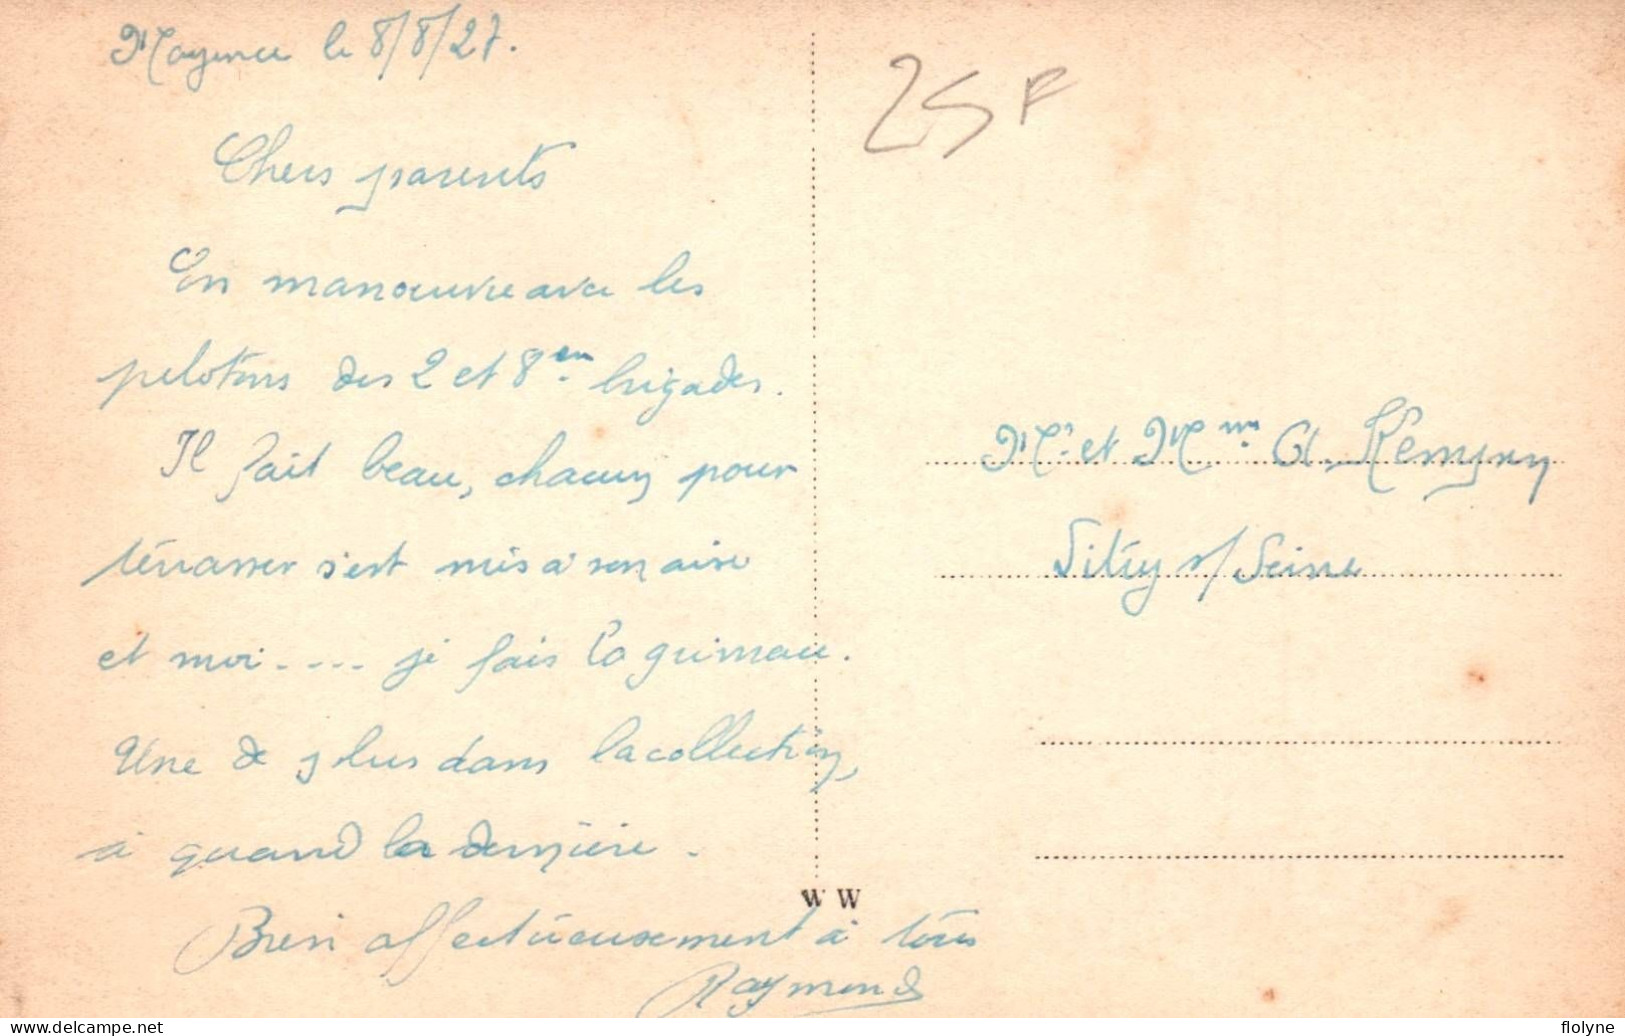 Mayence le 8/8/27.
25 F
Chers parents
En manoeuvre avec les
pelotons des 2 et 8em brigades.
Il fait beau, chacun pour
terrasser s'est mis à son aise
et moi.... je fais la grimace.
Une de plus dans la collection,
à quand la dernière.
Bien affectueusement à tous
Raymond
Mr et Mme A. Rémy
Vitry s/ Seine
W W
flolyne